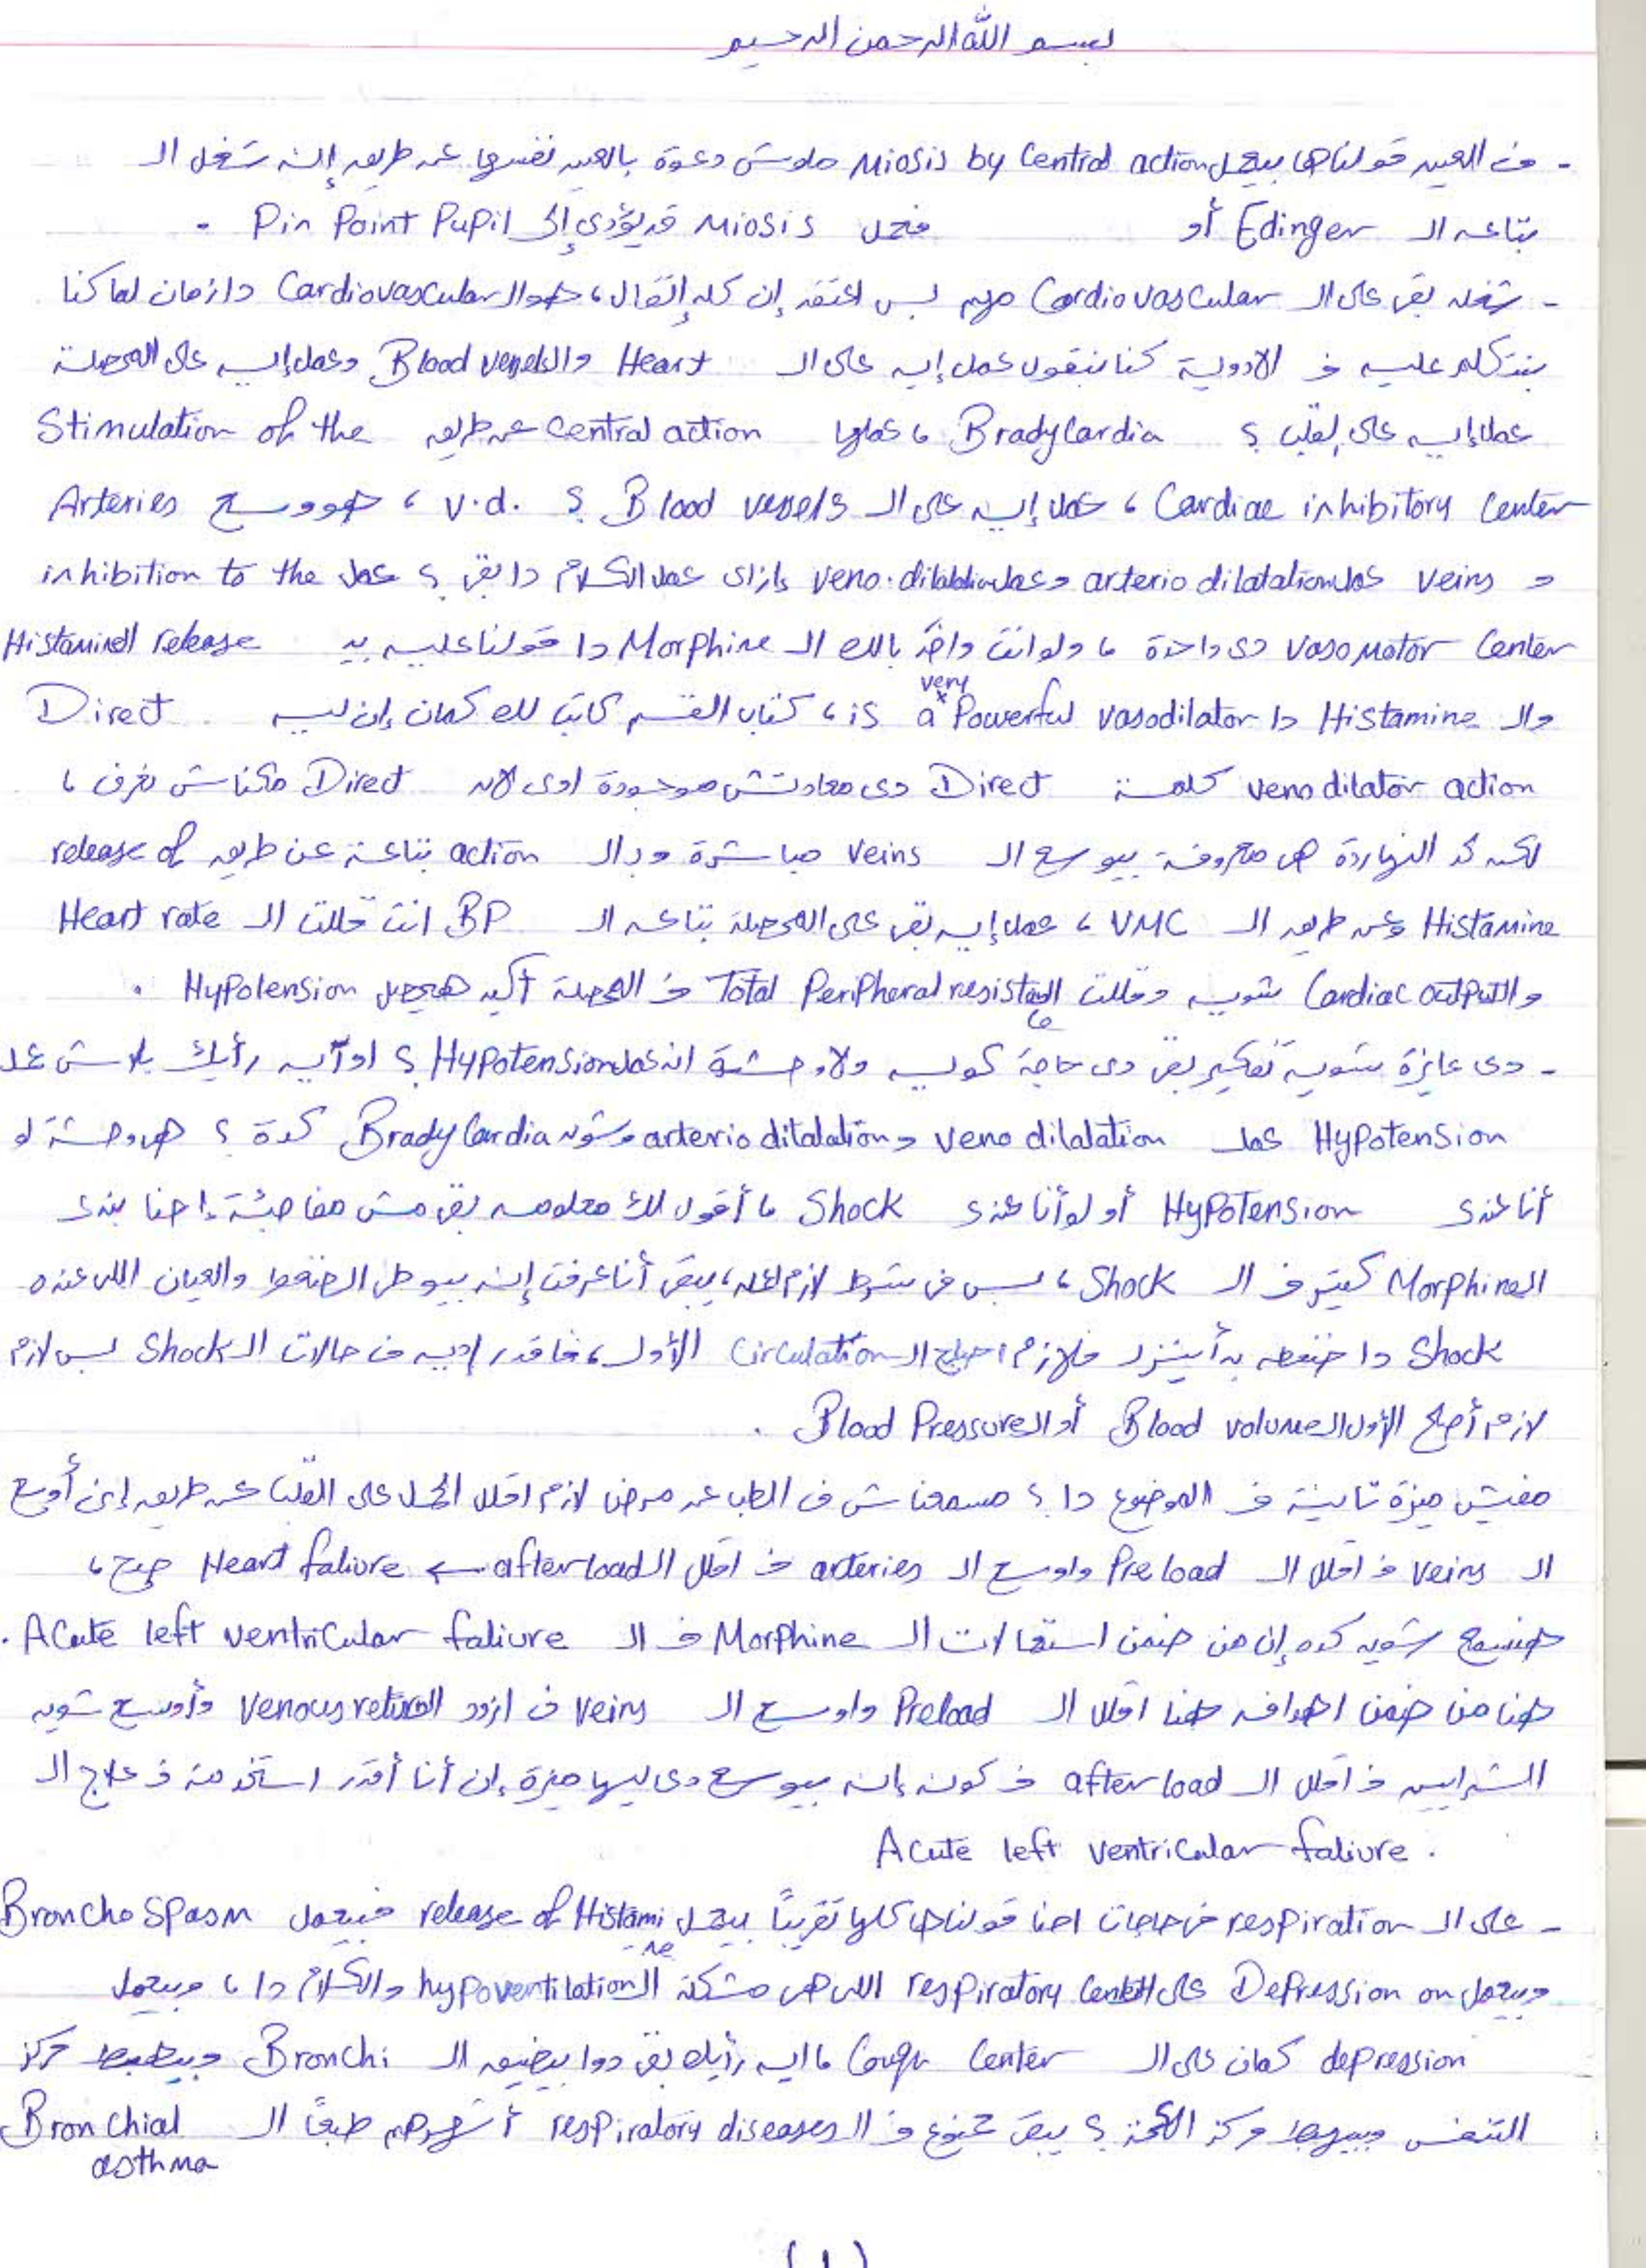 بسم الله الرحمن الرحيم
- ف العين قولناها بيعمل Miosis by Central action ملوش دعوة بالعين نفسها عن طريق إنه شغل ال
بتاعه ال Edinger أو فعمل Miosis قد يؤدى إلى Pin Point Pupil -
- شغله بقى على ال Cardiovascular مهم بس اعتقد إن كله إتقال ، هو ال Cardiovascular دا زمان لما كنا
بنتكلم عليه ف الادوية كنا بنقول عمل إيه على ال Heart وال Blood vessels وعمل إيه على المحصلة
عمل إيه على القلب ؟ Bradycardia ، عملها central action عن طريق Stimulation of the
Cardiac inhibitory Center ، عمل إيه على ال Blood vessels ؟ V.d. ، هو وسع Arteries
و Veins عمل arterio dilatation وعمل veno.dilatation إزاى عمل الكلام دا بقى ؟ عمل inhibition to the
Vasomotor Center دى واحدة ، ولو انت واخد بالك ال Morphine دا قولنا عليه بيـ Histamine release
وال Histamine دا is a very Powerful vasodilator ، كتاب القسم كاتب لك كمان إن ليه Direct
veno dilator action كلمة Direct دى معادتش موجودة اوى لان Direct مكناش نعرف ،
لكن النهاردة هى معروفة بيوسع ال Veins مباشرة وبال action بتاعة عن طريق release of
Histamine وعن طريق ال VMC ، عمل إيه بقى على المحصلة بتاعه ال BP انت قللت ال Heart rate
وال Cardiac output شويه وقللت ال Total Peripheral resistance ف المحصلة أكيد هيحصل Hypotension .
- دى عايزة شوية تفكير بقى دى حاجة كويسه ولا وحشة انه عمل Hypotension ؟ رأيك بلاش عمل
Hypotension عمل veno dilatation و arterio dilatation وشويه Bradycardia كدة ؟ هى وحشة لو
أنا عندى Hypotension أو لو أنا عندى Shock ، أقول لك معلومه بقى مش مفاجئة إحنا بندى
ال Morphine كتير ف ال Shock ، بس فى شرط لازم اعمله ، يبقى أنا عرفت إنه بيوطى الضغط والعيان اللى عنده
Shock دا ضغطه بدأ ينزل فلازم اصلح ال Circulation الأول ، فاقدر اديه ف حالات ال Shock بس لازم
لازم أصلح الأول ال Blood volume أو ال Blood Pressure .
مفيش ميزة تانية ف الموضوع دا ؟ مسمعناش ف الطب عن مرض لازم اقلل الحمل على القلب عن طريق إنى أوسع
ال veins ف اقلل ال Preload واوسع ال arteries ف اقلل ال afterload ← Heart faliure صح ،
هنسمع شويه كده إن من ضمن استعمالات ال Morphine ف ال Acute left ventricular faliure .
هنا من ضمن اهدافه هنا اقلل ال Preload واوسع ال Veins ف ازود ال Venous return وأوسع شويه
الشرايين ف اقلل ال afterload ف كونه إنه بيوسع دى ليها ميزة إن أنا أقدر استخدمة ف علاج ال
Acute left ventricular faliure .
- على ال respiration فى حاجات احنا قولناها كلها تقريباً بيعمل release of Histamine فبيعمل BronchoSpasm
وبيعمل Depression on على ال respiratory Center اللى هى مشكلة ال hypoventilation والكلام دا ، وبيعمل
depression كمان على ال Cough Center ، ايه رأيك بقى دوا بيضيق ال Bronchi وبيهبط مركز
التنفس وبيهبط مركز الكحة ؟ يبقى ممنوع ف ال respiratory diseases أشهرهم طبعاً ال Bronchial
asthma
(١)